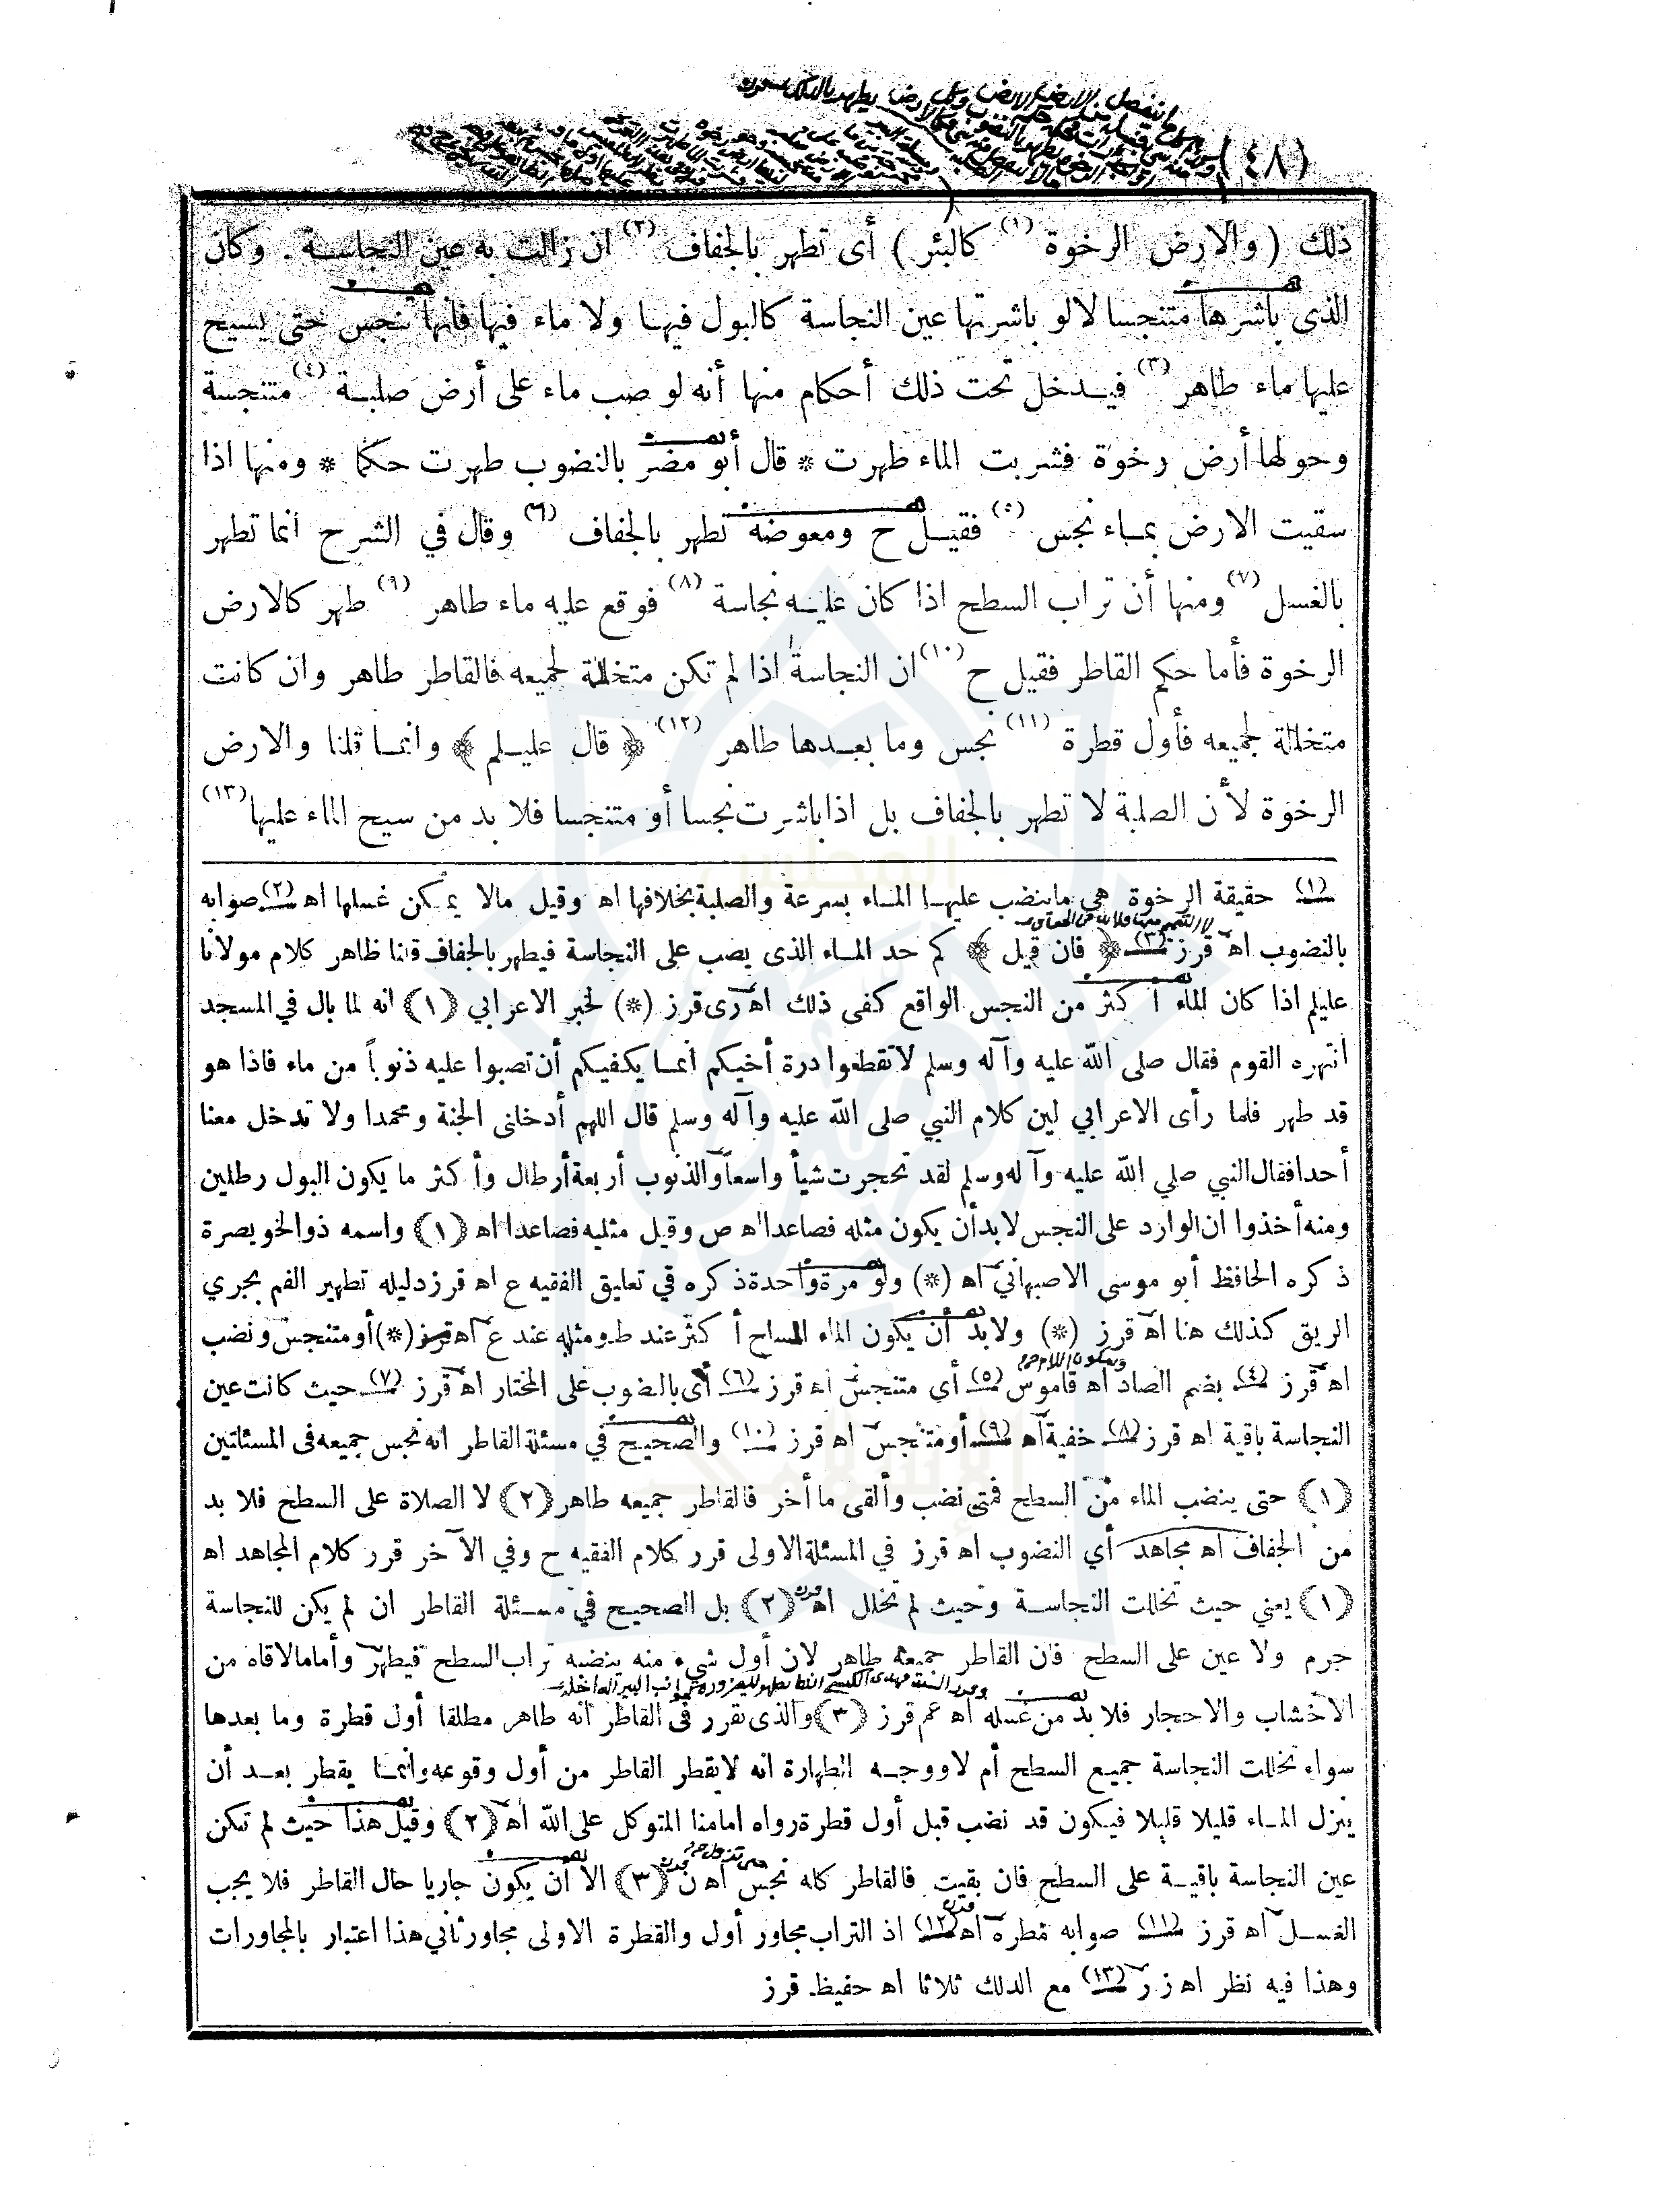 (٤٨)
ذلك ( والارض الرخوة (١) كالبئر ) أى تطهر بالجفاف (٢) ان زالت به عين النجاسة . وكان
الذى باشرها متنجسا لا لو باشرتها عين النجاسة كالبول فيها ولا ماء فيها فانها تنجس حتى يسيح
عليها ماء طاهر (٣) فيدخل تحت ذلك أحكام منها أنه لو صب ماء على أرض صلبة (٤) متنجسة
وحولها أرض رخوة فشربت الماء طهرت * قال أبو مضر بالنضوب طهرت حكما * ومنها اذا
سقيت الارض بماء نجس (٥) فقيل ح ومعوضه تطهر بالجفاف (٦) وقال في الشرح انما تطهر
بالغسل (٧) ومنها أن تراب السطح اذا كان عليه نجاسة (٨) فوقع عليه ماء طاهر (٩) طهر كالارض
الرخوة فأما حكم القاطر فقيل ح (١٠) ان النجاسة اذا لم تكن متخللة لجميعه فالقاطر طاهر وان كانت
متخللة لجميعه فأول قطرة (١١) نجس وما بعدها طاهر (١٢) ﴿ قال عليلم ﴾ وانما قلنا والارض
الرخوة لأن الصلبة لا تطهر بالجفاف بل اذا باشرت نجسا أو متنجسا فلا بد من سيح الماء عليها (١٣)
(١) حقيقة الرخوة هي ما ينضب عليها الماء بسرعة والصلبة بخلافها اه وقيل مالا يمكن غسلها اه (٢) صوابه
بالنضوب اه قرز (٣) ﴿ فان قيل ﴾ كم حد الماء الذى يصب على النجاسة فيطهر بالجفاف قلنا ظاهر كلام مولانا
عليلم اذا كان الماء أكثر من النجس الواقع كفى ذلك اه رى قرز (*) لخبر الاعرابي (١) انه لما بال في المسجد
انتهره القوم فقال صلى الله عليه وآله وسلم لا تقطعوا درة أخيكم انما يكفيكم أن تصبوا عليه ذنوباً من ماء فاذا هو
قد طهر فلما رأى الاعرابي لين كلام النبي صلى الله عليه وآله وسلم قال اللهم أدخلنى الجنة ومحمدا ولا تدخل معنا
أحدا فقال النبي صلي الله عليه وآله وسلم لقد تحجرت شيأ واسعاً والذنوب أربعة أرطال وأكثر ما يكون البول رطلين
ومنه أخذوا ان الوارد على النجس لا بد أن يكون مثله فصاعدا اه ص وقيل مثليه فصاعدا اه (١) واسمه ذوالخويصرة
ذكره الحافظ أبو موسى الاصبهاني اه (*) ولو مرة واحدة ذكره في تعليق الفقيه ع اه قرز دليله تطهير الفم بجري
الريق كذلك هنا اه قرز (*) ولا بد أن يكون الماء المساح أكثر عند ط ومثله عند ع اه قرز (*) أو متنجس ونضب
اه قرز (٤) بضم الصاد اه قاموس (٥) أي متنجس اه قرز (٦) أى بالنضوب على المختار اه قرز (٧) حيث كانت عين
النجاسة باقية اه قرز (٨) خفية اه (٩) أو متنجس اه قرز (١٠) والصحيح في مسئلة القاطر انه نجس جميعه فى المسئلتين
(١) حتى ينضب الماء من السطح فمتى نضب وألقى ما أخر فالقاطر جميعه طاهر (٢) لا الصلاة على السطح فلا بد
من الجفاف اه مجاهد أي النضوب اه قرز في المسئلة الاولى قرر كلام الفقيه ح وفي الآخر قرر كلام المجاهد اه
(١) يعني حيث تخللت النجاسة وحيث لم تخلل اه (٢) بل الصحيح في مسئلة القاطر ان لم يكن للنجاسة
جرم ولا عين على السطح فان القاطر جميعه طاهر لان أول شيء منه ينضبه تراب السطح فيطهر وأما ما لاقاه من
الاخشاب والاحجار فلا بد من غسله اه عم قرز (٣) والذى تقرر فى القاطر انه طاهر مطلقا أول قطرة وما بعدها
سواء تخللت النجاسة جميع السطح أم لا ووجه الطهارة انه لا يقطر القاطر من أول وقوعه وانما يقطر بعد أن
ينزل الماء قليلا قليلا فيكون قد نضب قبل أول قطرة رواه امامنا المتوكل على الله اه (٢) وقيل هذا حيث لم تكن
عين النجاسة باقية على السطح فان بقيت فالقاطر كله نجس اه ن (٣) الا أن يكون جاريا حال القاطر فلا يجب
الغسل اه قرز (١١) صوابه قطره اه (١٢) اذ التراب مجاور أول والقطرة الاولى مجاور ثاني هذا اعتبار بالمجاورات
وهذا فيه نظر اه زر (١٣) مع الدلك ثلاثا اه حفيظ قرز